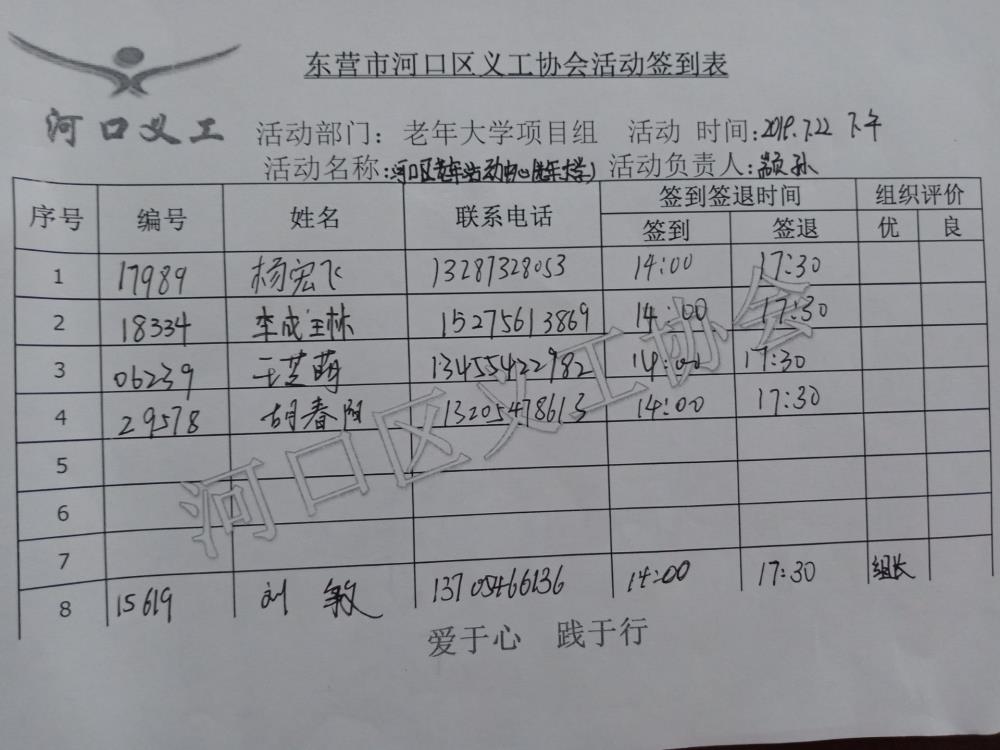 东营市河口区义工协会活动签到表
河口义工
活动部门: 老年大学项目组 活动 时间:2019.7.22 下午
活动名称:河口区老年活动中心(老年大学) 活动负责人:颛孙
序号 编号 姓名 联系电话 签到签退时间 组织评价
签到 签退 优 良
1 17989 杨宏飞 13287328053 14:00 17:30
2 18334 李成玉林 15275613869 14:00 17:30
3 06239 王芝萌 13455422982 14:00 17:30
4 29578 胡春阳 13205478613 14:00 17:30
5
6
7
8 15619 刘敏 13705466136 14:00 17:30 组长
爱于心 践于行
河口区义工协会